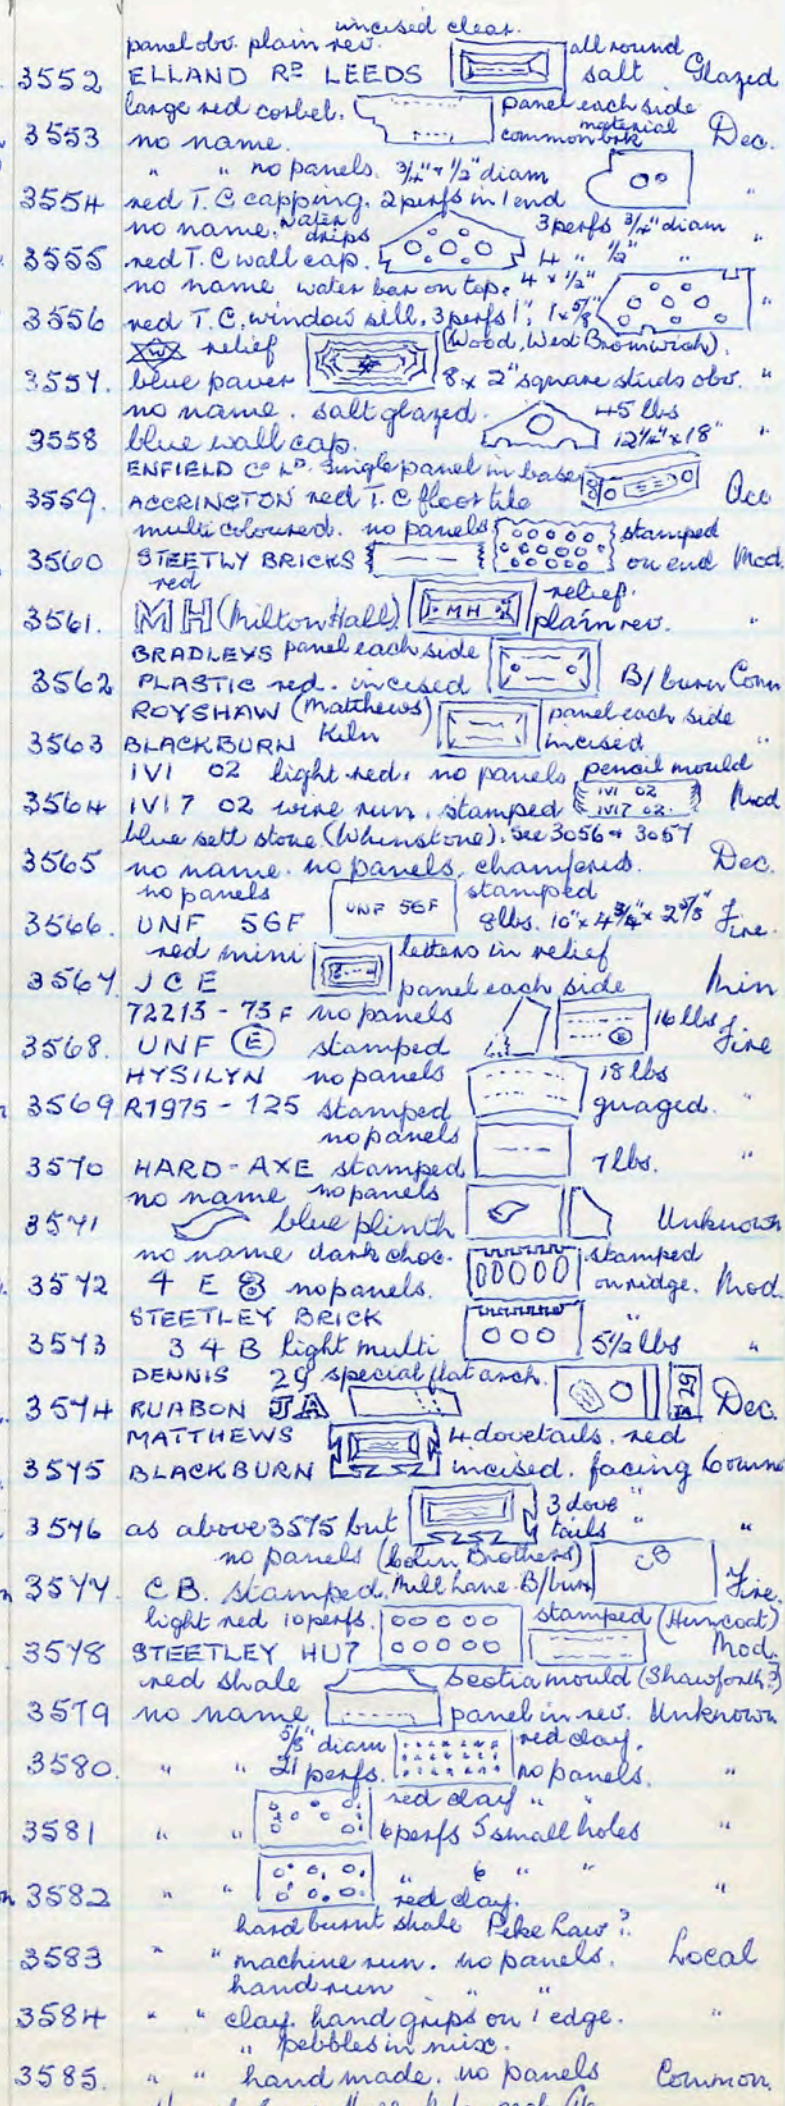 incised clear.
panel obv. plain rev. all round
3552 ELLAND RD LEEDS salt Glazed
large red corbel. panel each side
3553 no name. common brk material Dec.
" " no panels. 3/4" + 1/2" diam
3554 red T.C capping. 2 perfs in 1 end "
no name. water drips 3 perfs 3/4" diam "
3555 red T.C wall cap. 4 " 1/2" "
no name water bar on top. 4 x 1/2"
3556 red T.C. window sill. 3 perfs 1", 1 x 5/8" "
W relief (Wood, West Bromwich).
3557. blue paver 8 x 2" square studs obv. "
no name. salt glazed. 45 lbs
3558 blue wall cap. 12 1/4" x 18" "
ENFIELD Co LD. Single panel in base
3559. ACCRINGTON red T.C floor tile Acc
multi coloured. no panels stamped
3560 STEETLY BRICKS on end Mod.
red relief.
3561. MH (Milton Hall) MH plain rev. "
BRADLEYS panel each side
3562 PLASTIC red. incised B/burn Comm
ROYSHAW (Matthews) panel each side
3563 BLACKBURN Kiln incised "
1V1 02 light red. no panels pencil mould
3564 1V17 02 wire run. stamped 1V1 02 1V17 02. Mod
blue sett stone. (Whinstone). See 3056 + 3057
3565 no name. no panels. chamfered. Dec.
no panels stamped
3566. UNF 56F UNF 56F 8lbs. 10" x 4 3/4" x 2 5/8" Fire.
red mini letters in relief
3567 JCE panel each side Min
72213 - 73F no panels 16 lbs
3568. UNF E stamped E Fire
HYSILYN no panels 18 lbs
3569 R1975 - 125 stamped guaged. "
no panels
3570 HARD-AXE stamped 7 lbs. "
no name no panels
3571 blue plinth Unknown
no name dark choc. stamped
3572 4 E 8 no panels. on ridge. Mod.
STEETLEY BRICK "
3573 3 4 B light multi 5 1/2 lbs "
DENNIS 29 special flat arch.
3574 RUABON JA JA 29 Dec.
MATTHEWS 4 dovetails. red
3575 BLACKBURN incised. facing Comm
3576 as above 3575 but 3 dove tails " " "
no panels (Colin Brothers) CB
3577 C.B. stamped. Mill Lane B/burn Fire.
light red 10 perfs. stamped (Huncoat)
3578 STEETLEY HU7 Mod.
red shale scotia mould (Shawforth?)
3579 no name panel in rev. Unknown
5/8" diam red clay.
3580. " " 21 perfs. no panels. "
red clay " "
3581 " " 6 perfs 5 small holes "
" 6 " "
3582 " " red clay. "
hard burnt shale Pike Law?
3583 " " machine run. no panels. Local
hand run " "
3584 " " clay. hand grips on 1 edge. "
" pebbles in mix.
3585. " " hand made. no panels Common.